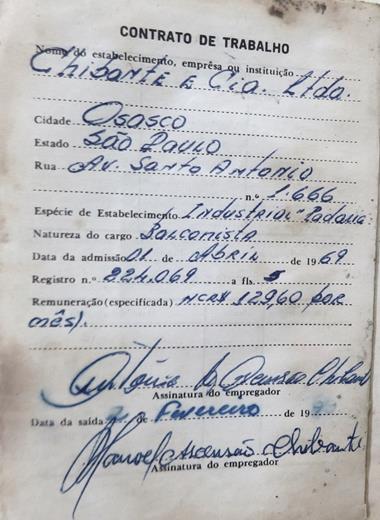 CONTRATO DE TRABALHO
Nome do estabelecimento, emprêsa ou instituição
Chibante e Cia. Ltda.
Cidade Osasco
Estado São Paulo
Rua Av. Santo Antonio
n.º 1.666
Espécie de Estabelecimento Industrial "Padaria"
Natureza do cargo Balconista
Data da admissão 01 de Abril de 1969
Registro n.º 224.069 a fls. 5
Remuneração (especificada) NCR$ 129,60 por
mês).
Assinatura do empregador
Data da saída de Fevereiro de 19
Manoel Ascensão Chibante
Assinatura do empregador